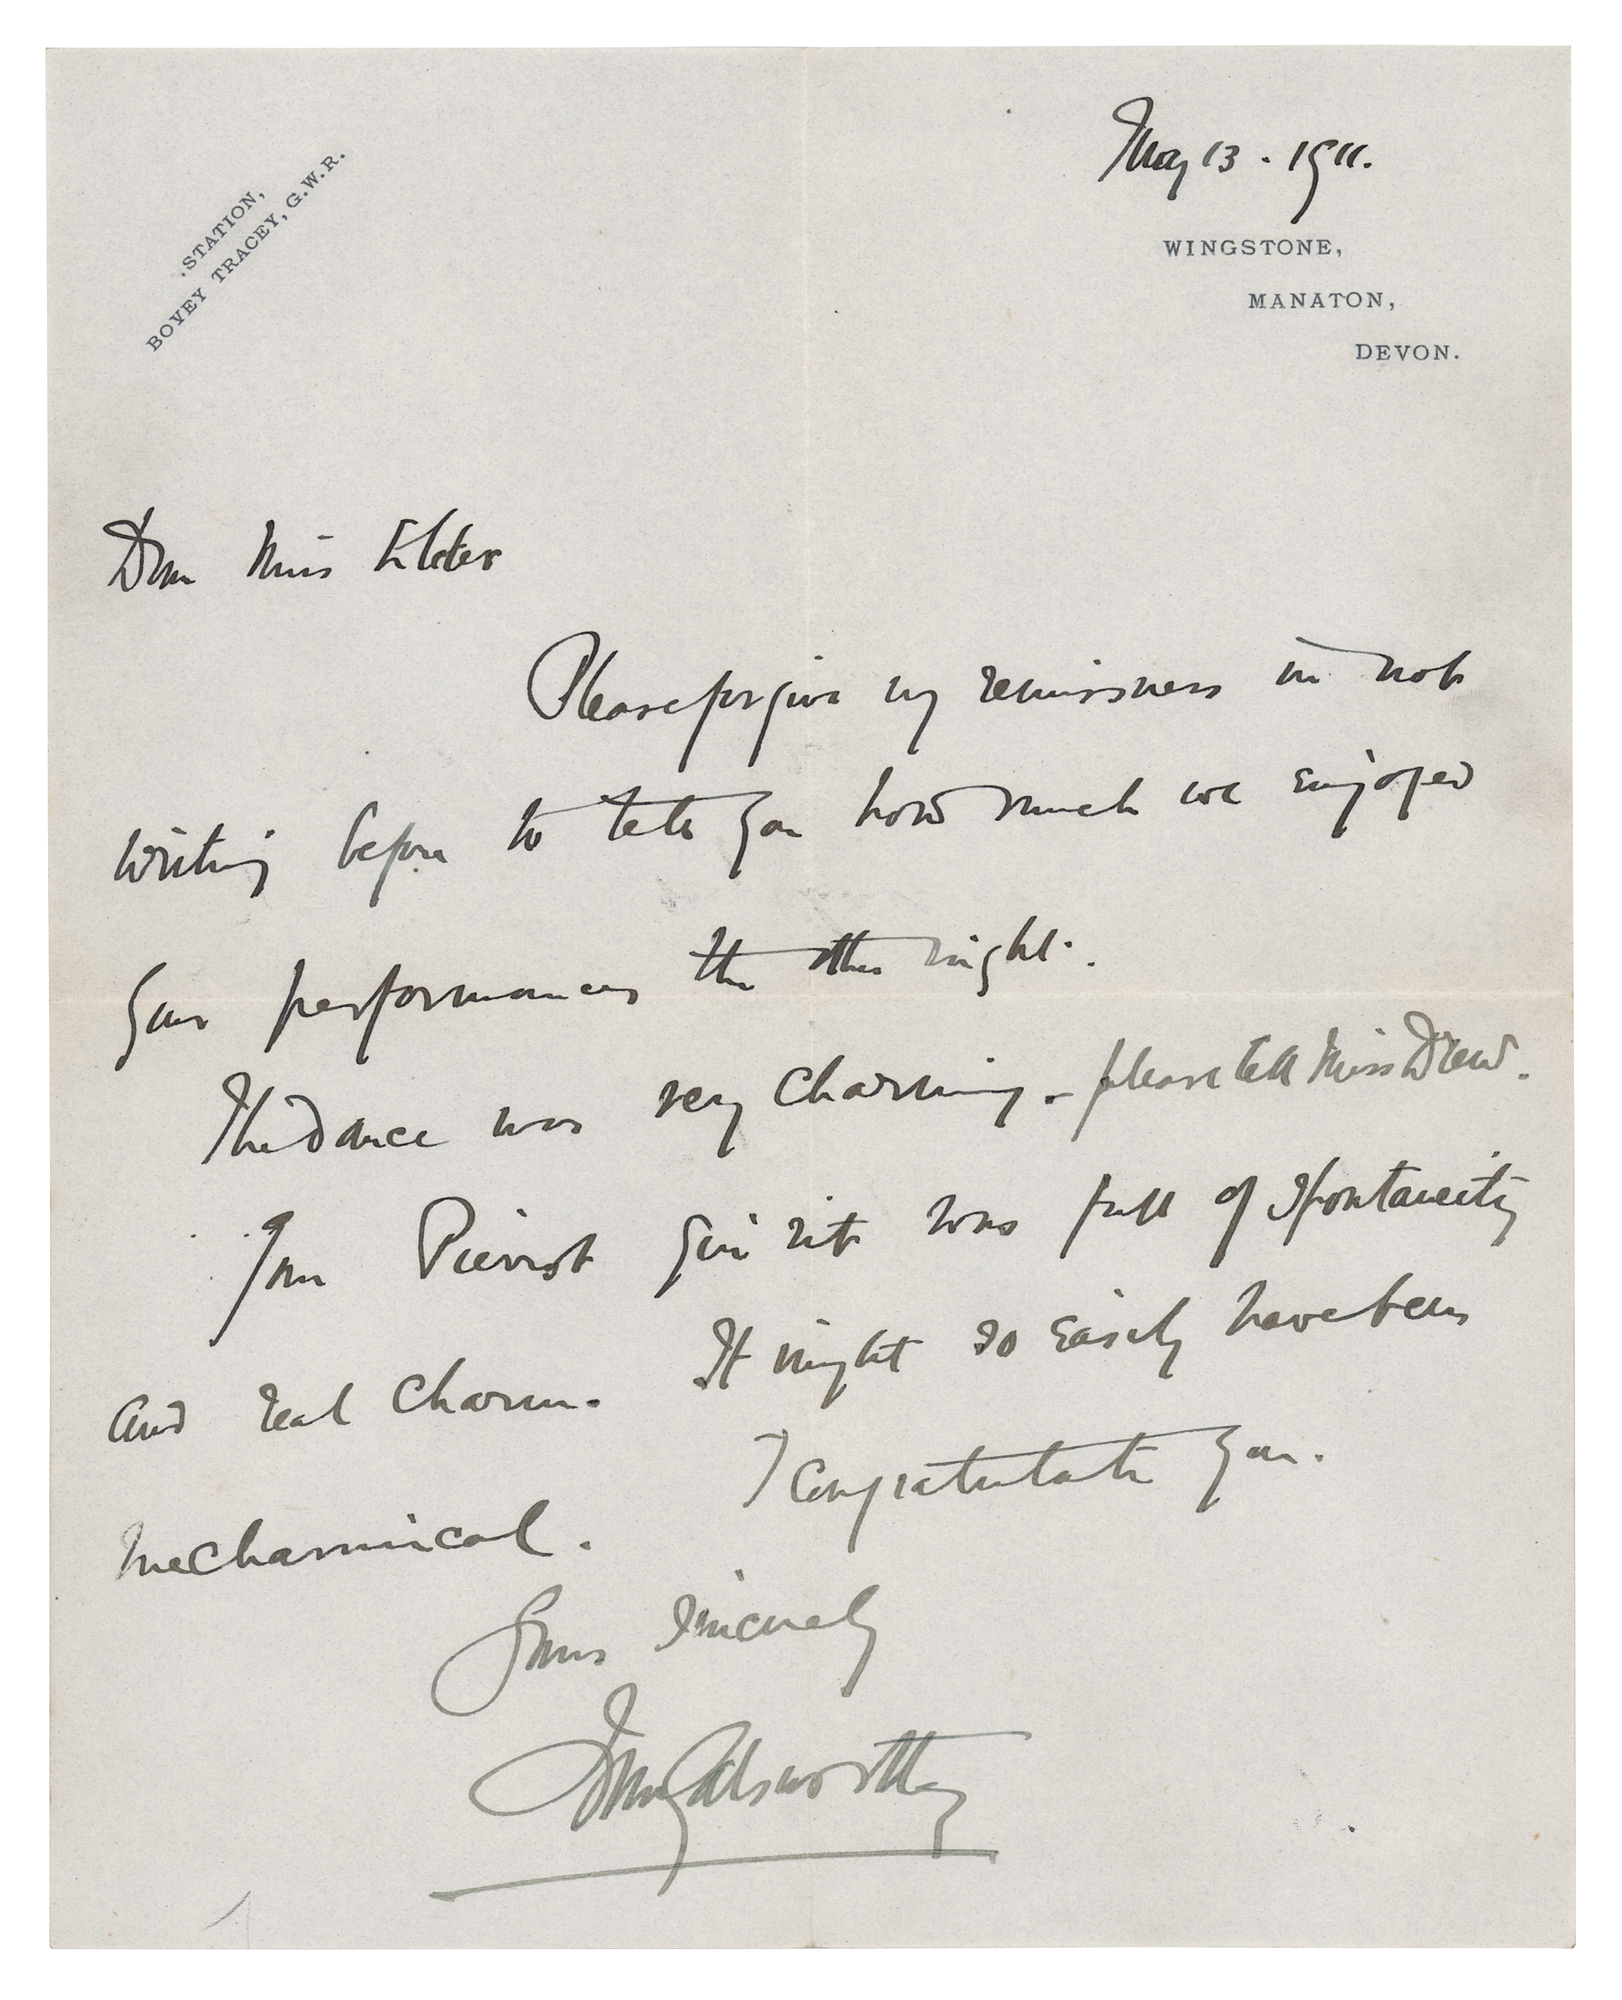 STATION,
BOVEY TRACEY, G.W.R.
May 13 . 1911.
WINGSTONE,
MANATON,
DEVON.
Dear Miss Elder
Please forgive my remissness in not
writing before to tell you how much we enjoyed
your performances the other night.
The dance was very charming - please tell Miss Drew.
Your Pierrot was full of spontaneity
and real charm. It might so easily have been
mechannical. I congratulate you.
Yours sincerely
John Galsworthy